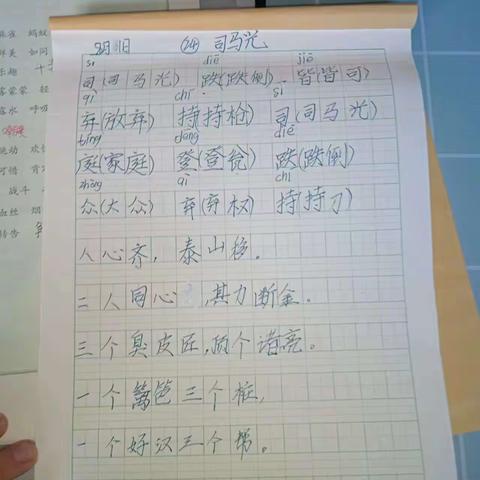 ㉔ 司马光
sī diē jiē
司(司马光) 跌(跌倒) 皆(皆可)
qì chí sī
弃(放弃) 持(持枪) 司(司马光)
tíng dēng diē
庭(家庭) 登(登瓮) 跌(跌倒)
zhòng qì chí
众(大众) 弃(弃权) 持(持刀)
人心齐，泰山移。
二人同心，其力断金。
三个臭皮匠，顶个诸亮。
一个篱笆三个桩，
一个好汉三个帮。
麻雀 蚂蚁
如同
乐趣
呼吸
战斗